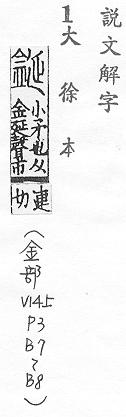 説文解字
1大徐本
鋋
小矛也从
金延聲市
連
切
(金部
V14.5
P3
B7
~
B8)